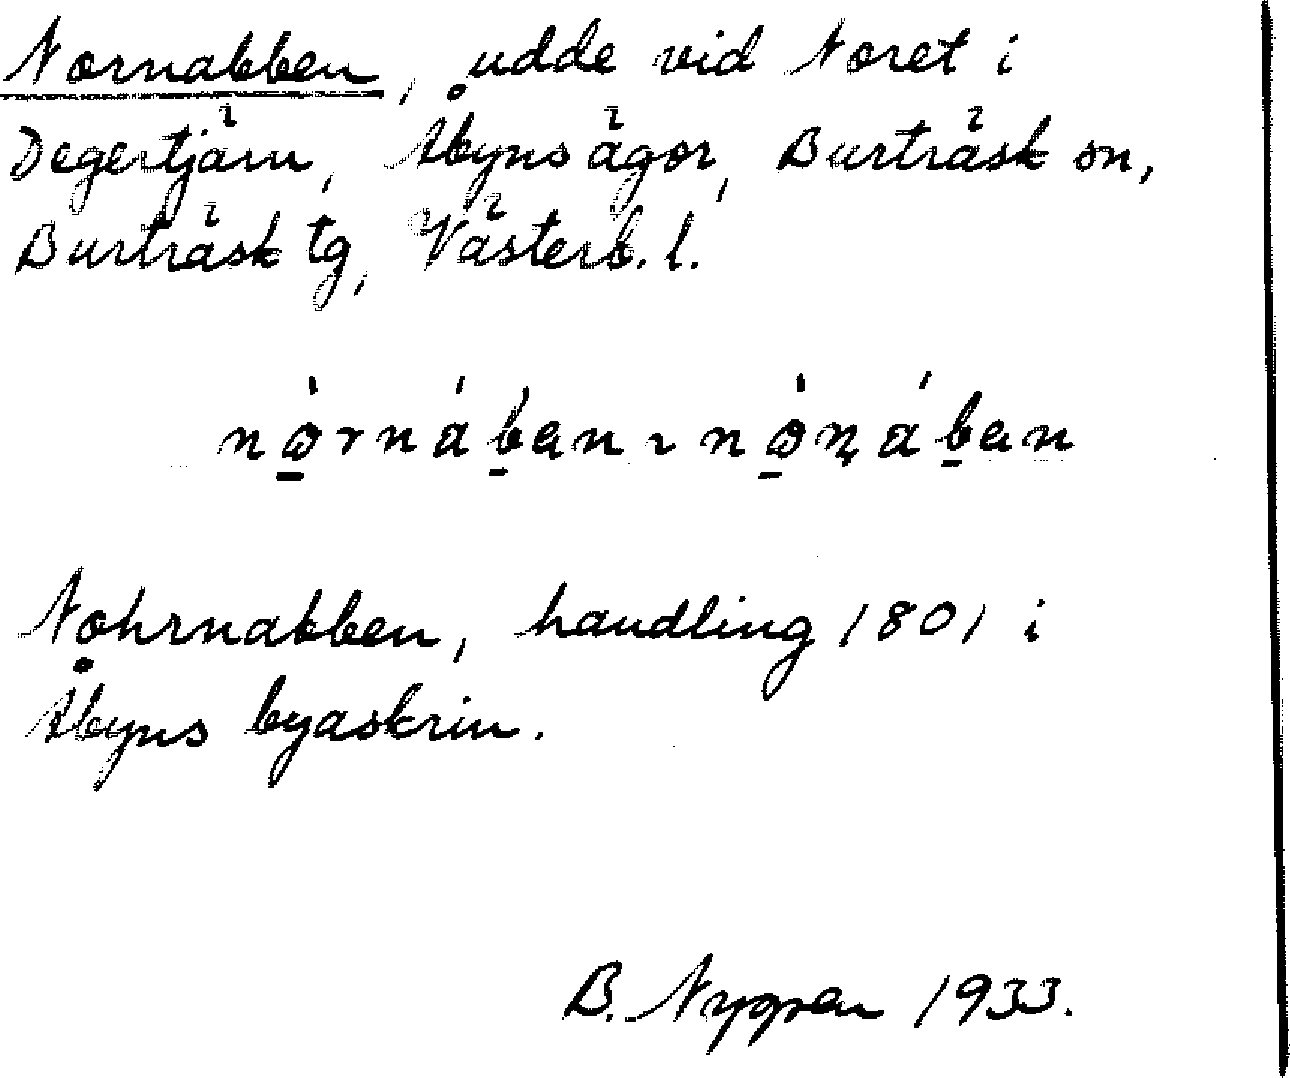 Nornabben, udde vid Noret i
Degertjärn, Åbyns ägor, Burträsk sn,
Burträsk tg, Västerb. l.
nò̱rnáḇən ~ nò̱ṇáḇən
Nohrnabben, handling 1801 i
Åbyns byaskrin.
B. Nygren 1933.